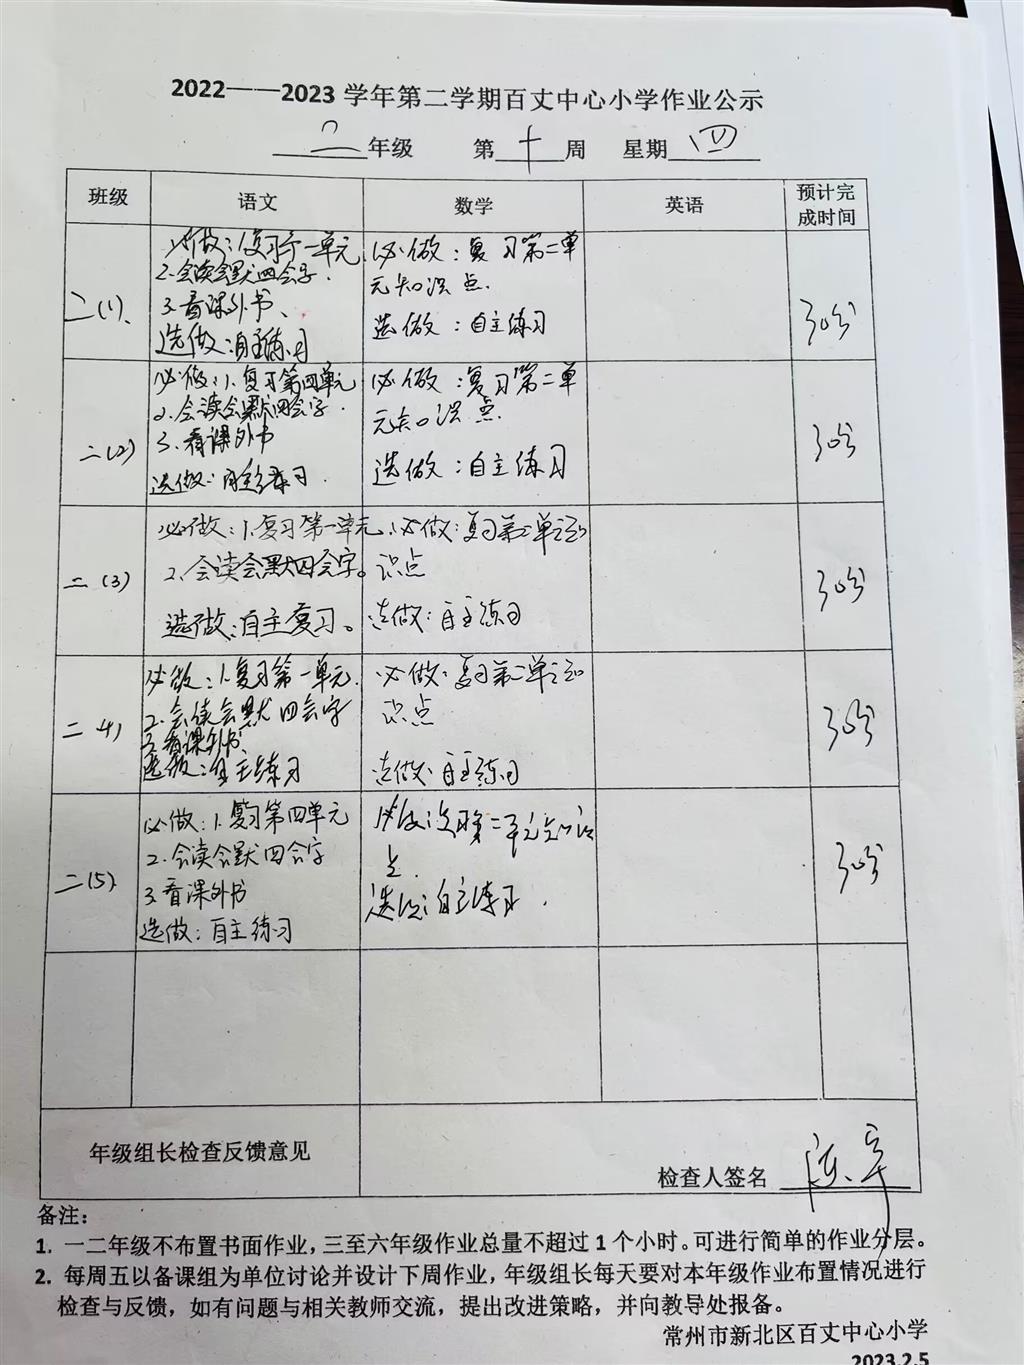 2022——2023 学年第二学期百丈中心小学作业公示
二年级 第十周 星期四
班级 语文 数学 英语 预计完成时间
二(1)、
必做:1.复习第一单元
2.会读会默四会字.
3.看课外书、
选做:自主练习
必做:复习第二单
元知识点.
选做:自主练习
30分
二(2)
必做:1.复习第四单元
2.会读会默四会字.
3.看课外书
选做:自主练习.
必做:复习第二单
元知识点.
选做:自主练习
30分
二(3)
必做:1.复习第一单元、
2、会读会默四会字。
选做:自主复习。
必做:复习第二单元知
识点
选做:自主练习
30分
二 4)
必做:1.复习第一单元.
2.会读会默四会字
3.看课外书、
选做:自主练习
必做:复习第二单元知
识点
选做:自主练习
30分
二(5)
必做:1.复习第四单元
2.会读会默四会字
3.看课外书
选做:自主练习
必做:复习第二单元知识
点.
选做:自主练习.
30分
年级组长检查反馈意见
检查人签名
备注:
1. 一二年级不布置书面作业,三至六年级作业总量不超过 1 个小时。可进行简单的作业分层。
2. 每周五以备课组为单位讨论并设计下周作业,年级组长每天要对本年级作业布置情况进行
检查与反馈,如有问题与相关教师交流,提出改进策略,并向教导处报备。
常州市新北区百丈中心小学
2023.2.5